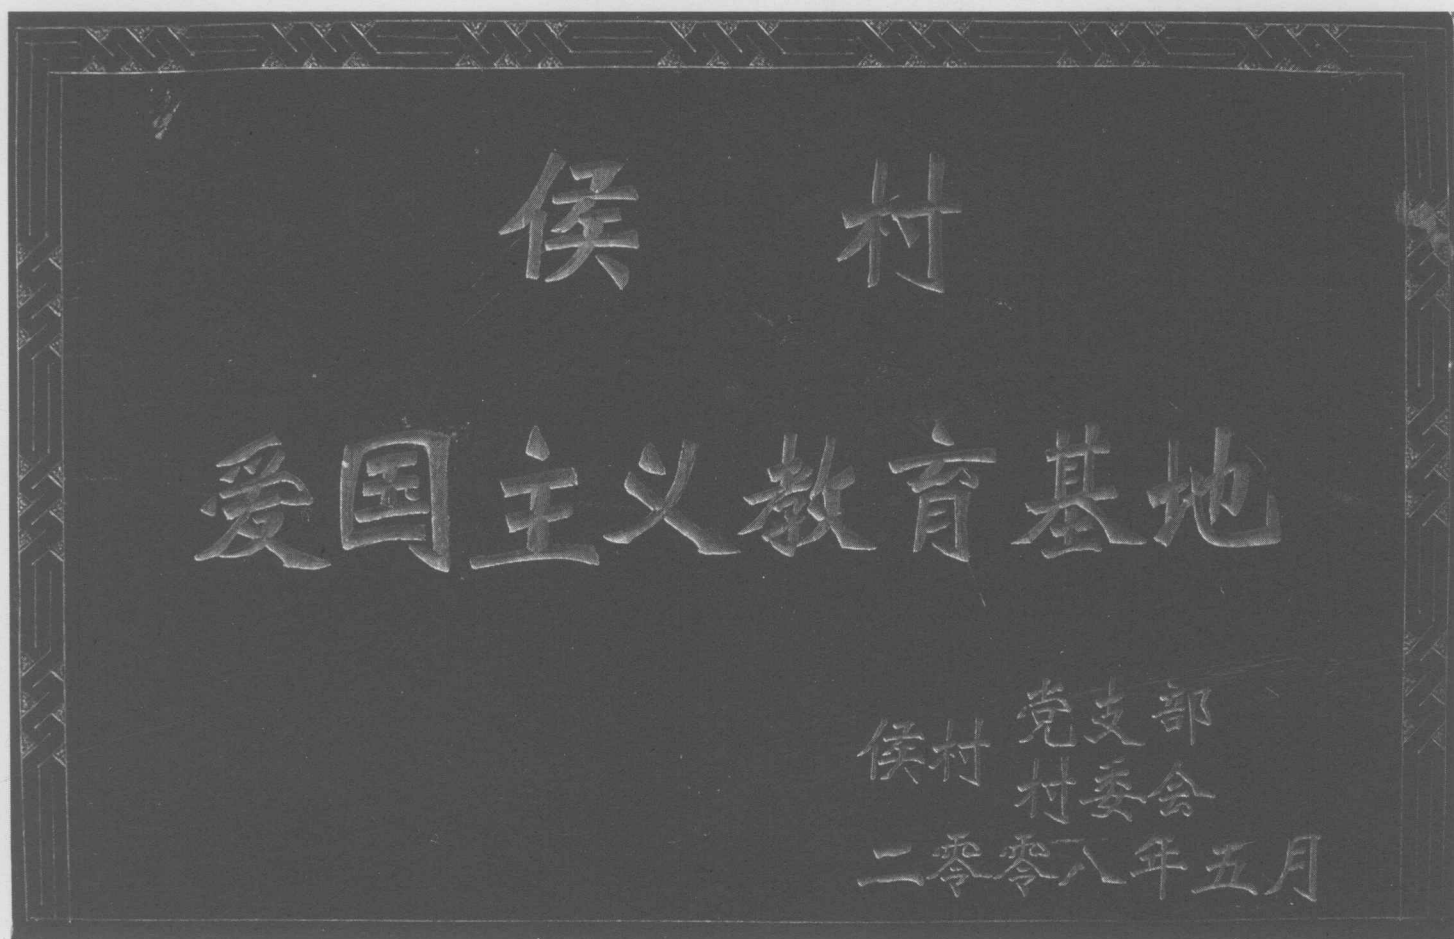 侯村
爱国主义教育基地
侯村 党支部
村委会
二零零八年五月